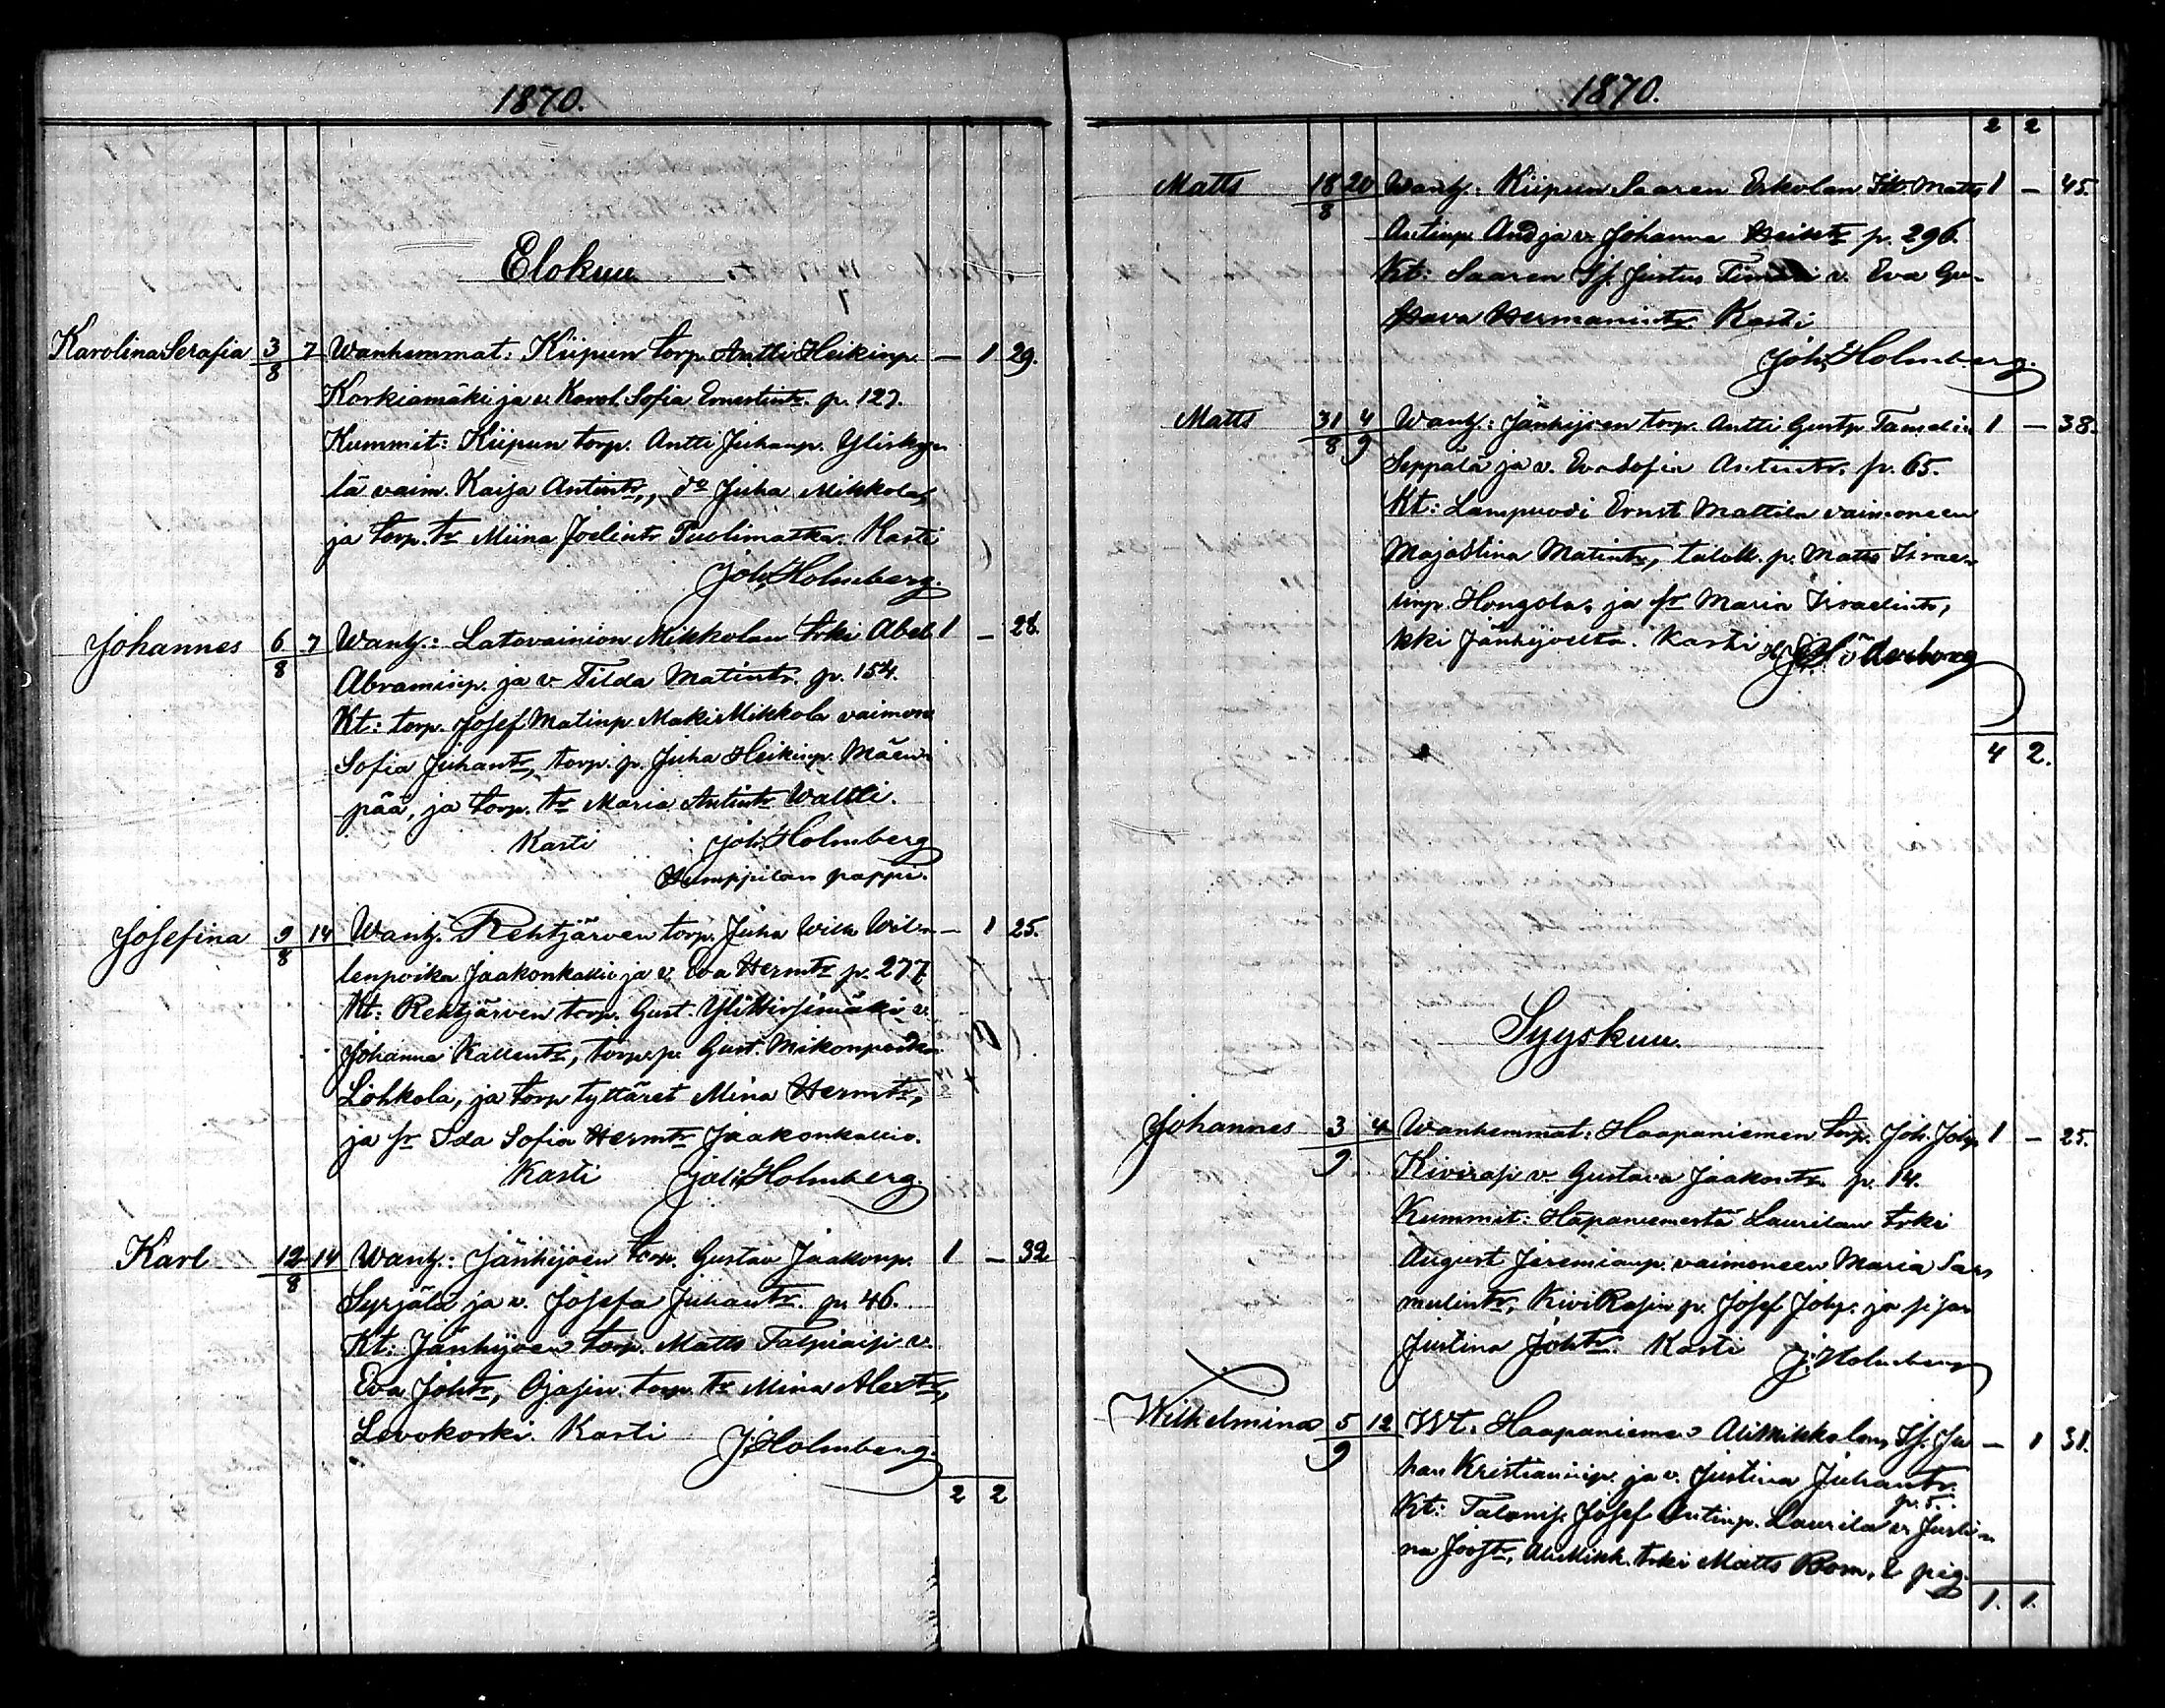 1870.
Elokuu
Karolina Serafia 3/8 7 Wanhemmat: Kiipun torp. Antti Heikinp. — 1 29.
Korkiamäki ja v. Karol. Sofia Ernestintr. p. 127.
Kummit: Kiipun torp. Antti Juhanp. Ylisky-
lä vaim. Kaija Antintr, do Juha Mikkola,
ja torp. tr Miina Joelintr Puolimatka. Kasti
Joh. Holmberg.
Johannes 6/8 7 Wanh.: Latovainion Mikkolan trki Abel 1 — 28.
Abraminp. ja v. Tilda Matintr. p. 154.
Kt: torp. Josef Matinp. Maki Mikkola vaimon
Sofia Juhantr, torp. p. Juha Heikinp. Mäen-
pää, ja torp. tr Maria Antintr Waltti.
Kasti Joh. Holmberg
Humppilan pappi.
Josefina 9/8 14 Wanh. Rehtjärven torp. Juha Wilh. Wil- — 1 25.
lenpoika Jaakonkallio ja v. Eva Hermtr p. 277.
Kt: Rehtjärven torp. Gust. v.
Johanna Kallentr, torp. p. Gust. Mikonpoika
Löhkola, ja torp tyttäret Mina Hermtr,
ja pr Ida Sofia Hermtr Jaakonkallio.
Kasti Joh. Holmberg.
Karl 12/8 14 Wanh.: Jänhijoen torp. Gustav Jaakonp. 1 — 32
Syrjälä ja v. Josefa Juhantr. p. 46.
Kt: Jänhijoen torp. Matts Talpiaisi v.
Eva Johtr, Ojasin torp. tr Mina Alextr,
Levokoski. Kasti J. Holmberg.
2 2
1870.
2 2
Matts 18/8 20 Wanh.: Kiipun Saaren Eskolan Matts 1 — 45.
Antinp. And ja v. Johanna Heiktr p. 296.
Kt: Saaren Justus v. Eva Gu-
stava Hermanintr Kasti
Joh. Holmberg.
Matts 31/8 4/9 Wanh.: Jänhijoen torp. Antti Gustp Tamelin 1 — 38.
Seppälä ja v. Eva Sofia Antintr. p. 65.
Kt: Lampuodi Ernst Mattila vaimoneen
Maja Stina Matintr, talol. p. Matts Israe-
linp. Hongola, ja pr Maria Israelintr,
kki Jänhijoelta. Kasti Söderborg
4 2.
Syyskuu.
Johannes 3/9 4 Wanhemmat: Haapaniemen torp. Joh. Johp. 1 — 25.
Kivirasi v. Gustava Jaakontr. p. 14.
Kummit: Hapaniemestä Laurilan trki
August Jeremianp. vaimoneen Maria Sa-
mulintr, KiviRasin p. Josef Johp. ja sisar
Justina Johtr. Kasti J. Holmberg
Wilhelmina 5/9 12 Wt. Haapaniemen AliMikkolan Ju- — 1 31.
han Kristianinp. ja v. Justina Juhantr.
p. 5.
Kt: Talonis. Josef Antinp. Laurila v. Justi-
na Joostr, AliMikk. trki Matts Bom, & pig.
1. 1.